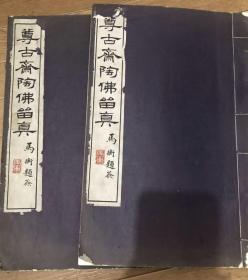 尊古齋陶佛留真
馬衡題簽
尊古齋陶佛留真
馬衡題簽